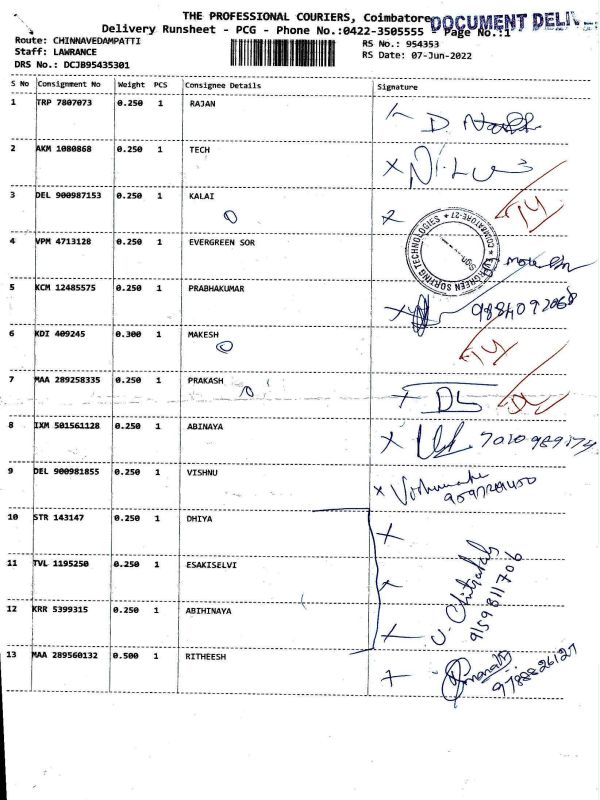 THE PROFESSIONAL COURIERS, Coimbatore
DOCUMENT
Delivery Runsheet - PCG - Phone No.:0422-3505555
Page No.:1
Route: CHINNAVEDAMPATTI
RS No.: 954353
Staff: LAWRANCE
RS Date: 07-Jun-2022
DRS No.: DCJB95435301
S No Consignment No Weight PCS Consignee Details Signature
1 TRP 7807073 0.250 1 RAJAN
2 AKM 1080868 0.250 1 TECH
3 DEL 900987153 0.250 1 KALAI
4 VPM 4713128 0.250 1 EVERGREEN SOR
EVERGREEN SORTING TECHNOLOGIES * COIMBATORE-27 *
5 KCM 12485575 0.250 1 PRABHAKUMAR
6 KDI 409245 0.300 1 MAKESH
7 MAA 289258335 0.250 1 PRAKASH
8 IXM 501561128 0.250 1 ABINAYA
9 DEL 900981855 0.250 1 VISHNU
10 STR 143147 0.250 1 DHIYA
11 TVL 1195250 0.250 1 ESAKISELVI
9159811706
12 KRR 5399315 0.250 1 ABIHINAYA
13 MAA 289560132 0.500 1 RITHEESH
9788826127